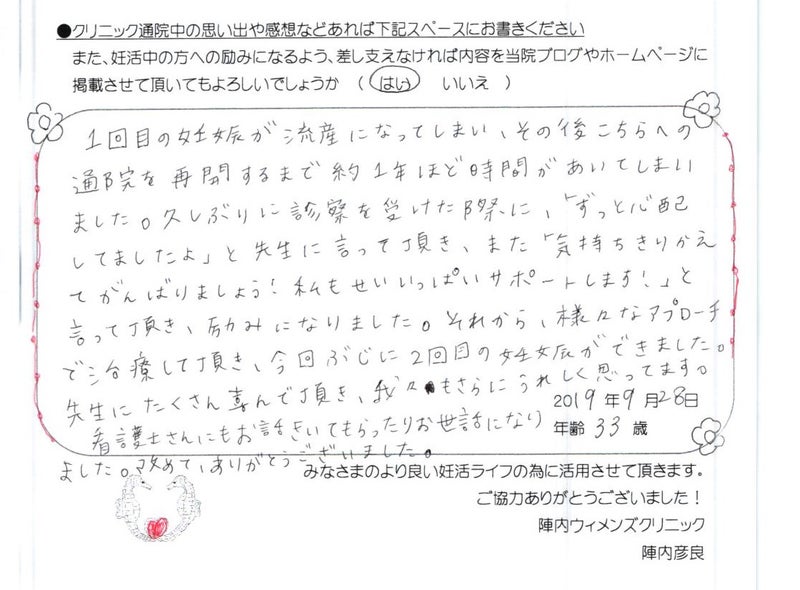 ●クリニック通院中の思い出や感想などあれば下記スペースにお書きください
また、妊活中の方への励みになるよう、差し支えなければ内容を当院ブログやホームページに
掲載させて頂いてもよろしいでしょうか （ はい いいえ ）
1回目の妊娠が流産になってしまい、その後こちらへの
通院を再開するまで約1年ほど時間があいてしまい
ました。久しぶりに診察を受けた際に、「ずっと心配
してましたよ」と先生に言って頂き、また「気持ちきりかえ
てがんばりましょう！私もせいいっぱいサポートします！」と
言って頂き、励みになりました。それから、様々なアプローチ
で治療して頂き、今回ぶじに2回目の妊娠ができました。
先生にたくさん喜んで頂き、我々もさらにうれしく思ってます。
看護士さんにもお話きいてもらったりお世話になり
ました。改めて、ありがとうございました。
2019年9月28日
年齢 33 歳
みなさまのより良い妊活ライフの為に活用させて頂きます。
ご協力ありがとうございました！
陣内ウィメンズクリニック
陣内彦良